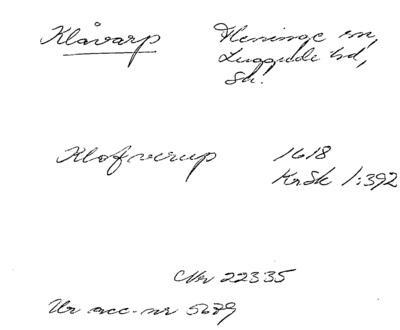 Klåvarp Fleninge sn,
Luggude hd,
Sk.
Klofverup 1618
KrSk 1:392
CNr 22335
Ur acc.-nr 5679